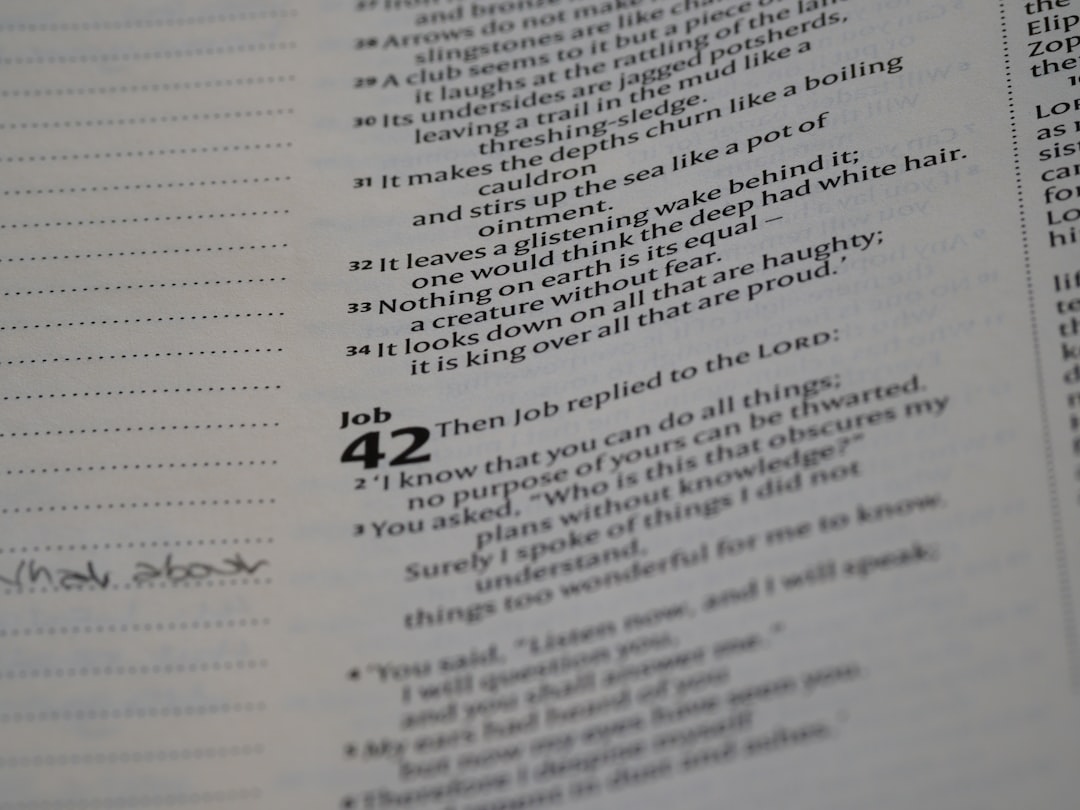 What about
and bronze
28 Arrows do not make
slingstones are like
29 A club seems to it but a piece
it laughs at the rattling of the
30 Its undersides are jagged potsherds,
leaving a trail in the mud like a
threshing-sledge.
31 It makes the depths churn like a boiling
cauldron
and stirs up the sea like a pot of
ointment.
32 It leaves a glistening wake behind it;
one would think the deep had white hair.
33 Nothing on earth is its equal –
a creature without fear.
34 It looks down on all that are haughty;
it is king over all that are proud.’
Job
42 Then Job replied to the LORD:
2 ‘I know that you can do all things;
no purpose of yours can be thwarted.
3 You asked, “Who is this that obscures my
plans without knowledge?”
Surely I spoke of things I did not
understand,
things too wonderful for me to know.
4 ‘You said, “Listen now, and I will speak;
I will question you,
and you shall answer me.”
5 My ears had heard of you
but now my eyes have seen you.
6 Therefore I despise myself
and repent in dust and ashes.’
the
Elip
Zop
the
LOR
as
sist
car
for
LO
hi
lif
te